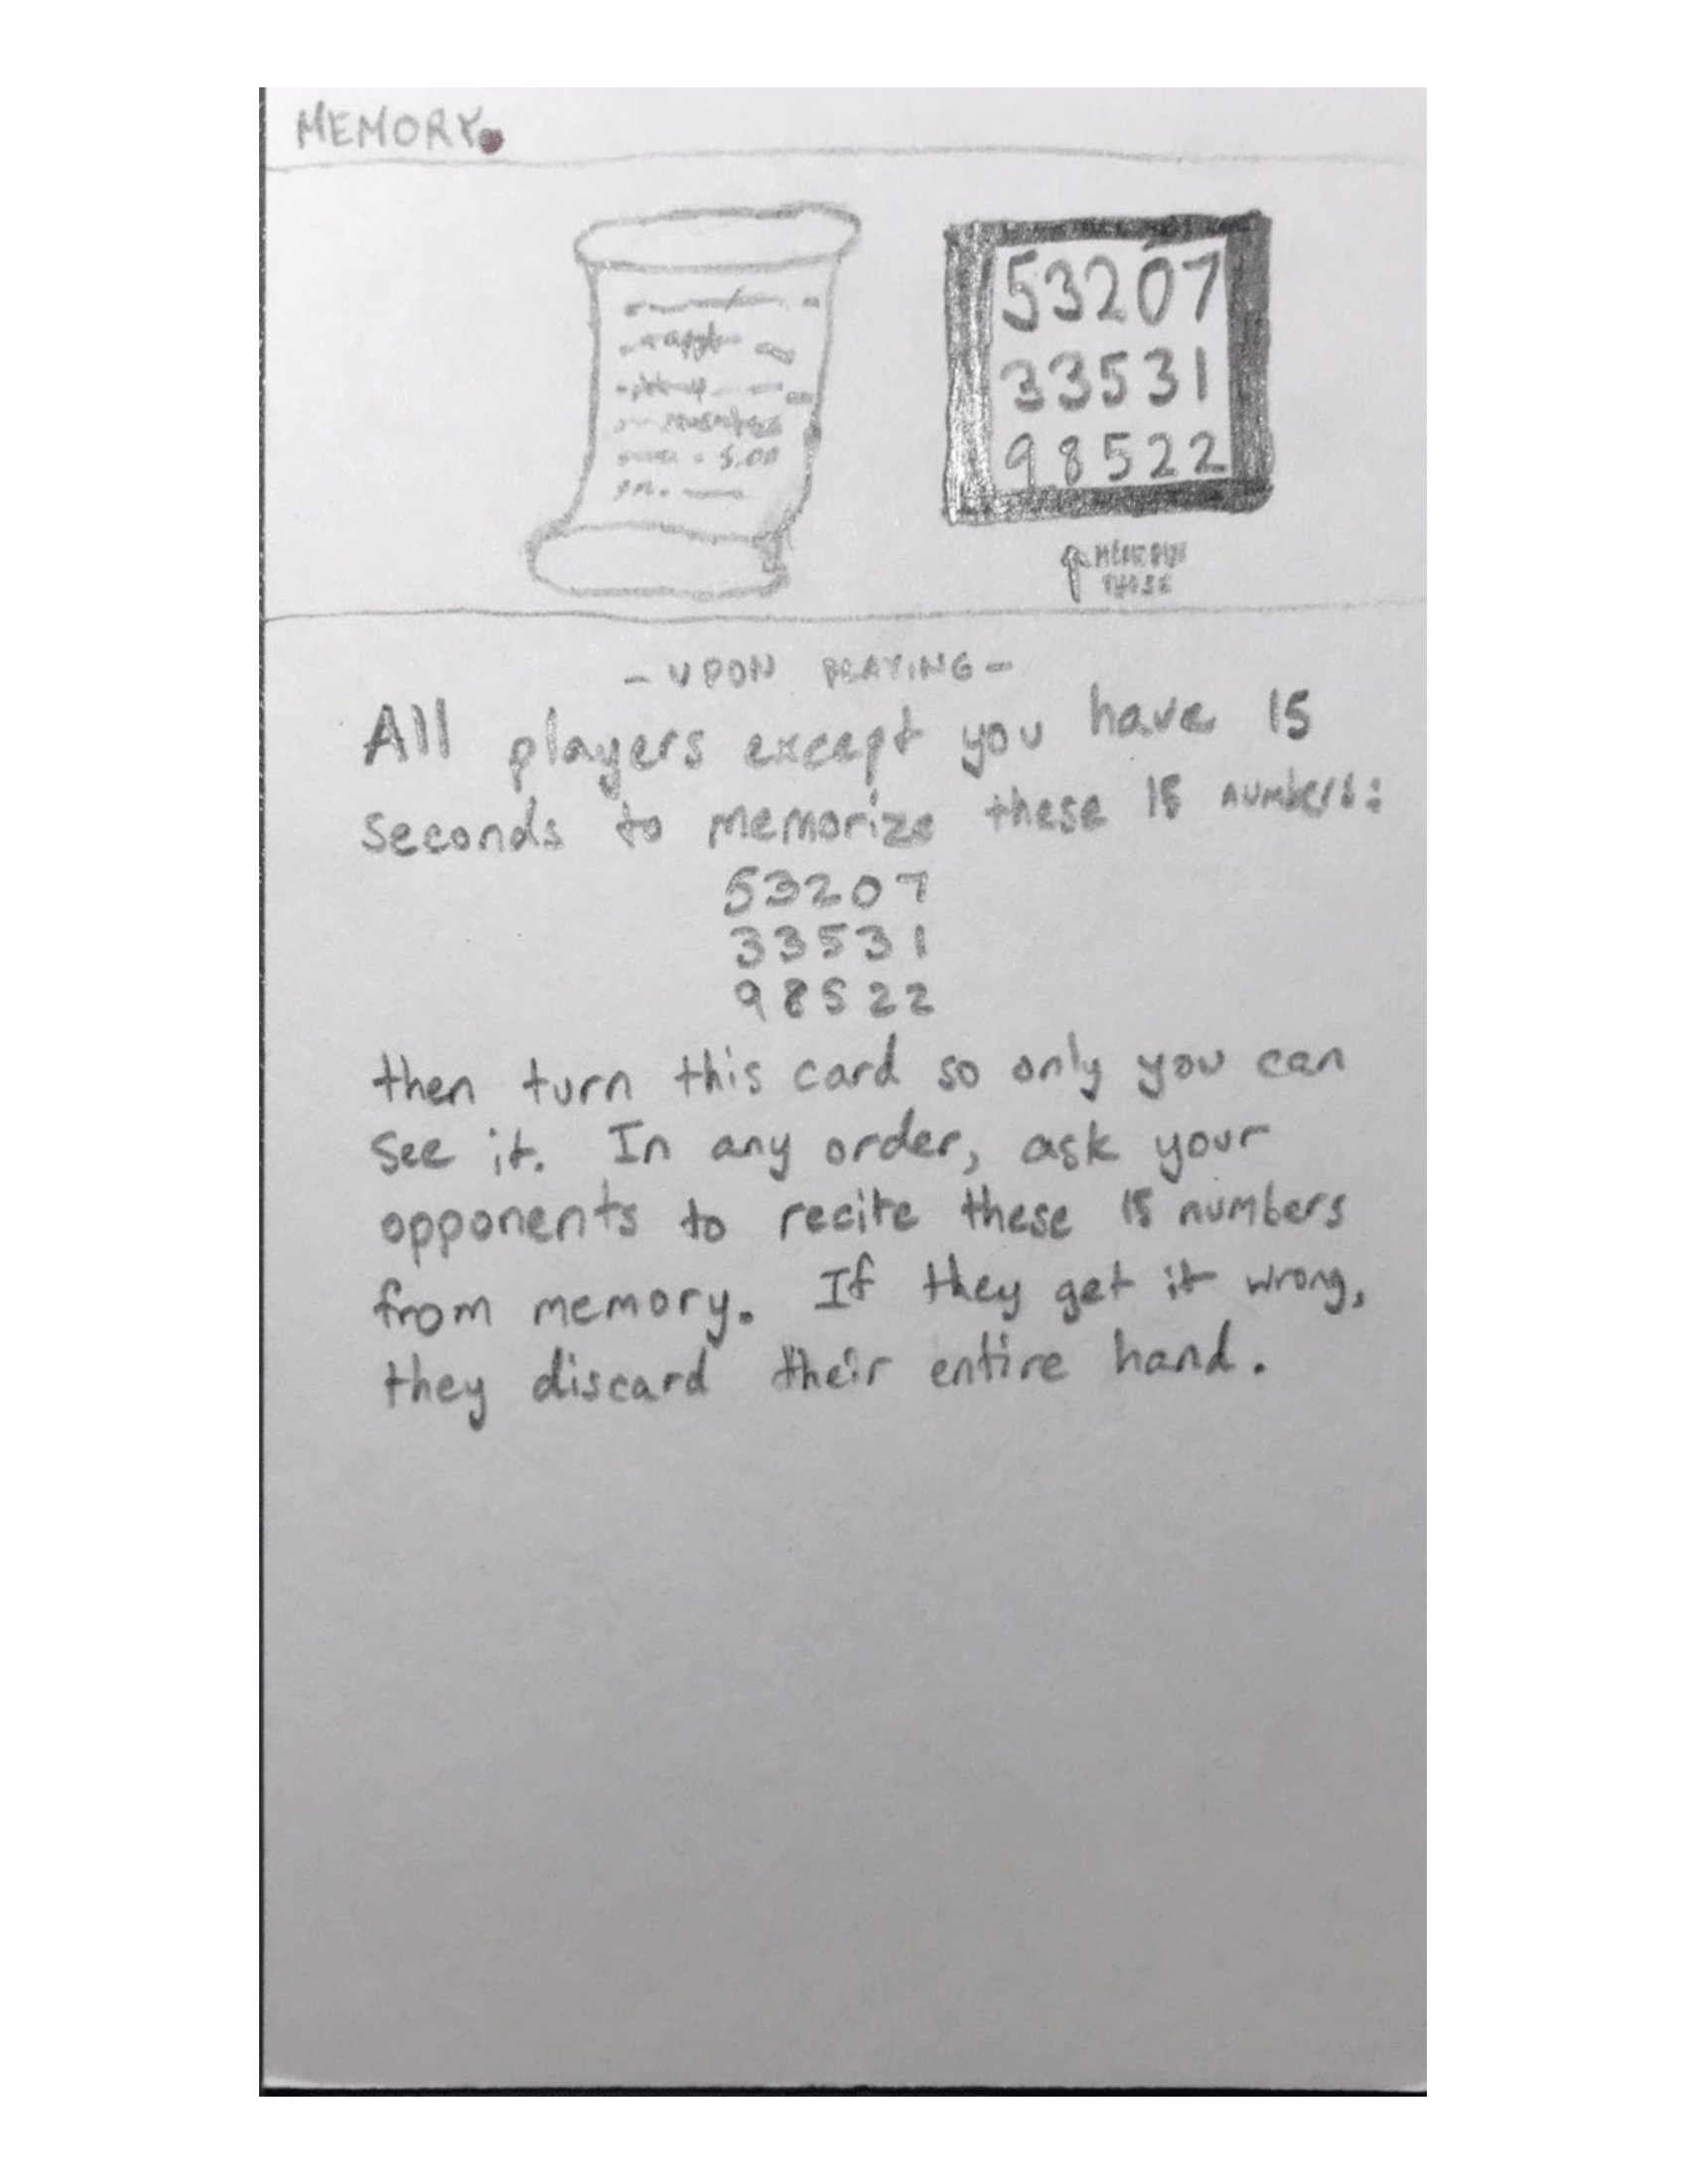 MEMORY.
53207
33531
98522
5.00
MEMORIZE
THESE
- UPON PLAYING -
All players except you have 15
seconds to memorize these 15 numbers:
53207
33531
98522
then turn this card so only you can
see it. In any order, ask your
opponents to recite these 15 numbers
from memory. If they get it wrong,
they discard their entire hand.